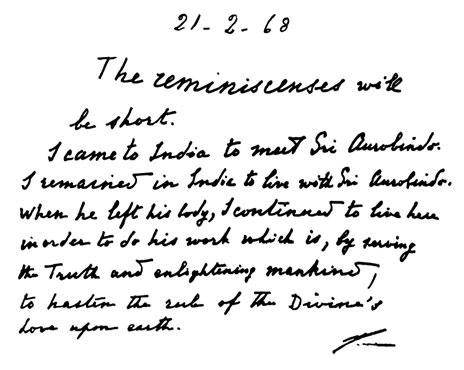 21-2-68
The reminiscenses will
be short.
I came to India to meet Sri Aurobindo.
I remained in India to live with Sri Aurobindo.
When he left his body, I continued to live here
in order to do his work which is, by serving
the Truth and enlightening mankind,
to hasten the rule of the Divine's
Love upon earth.